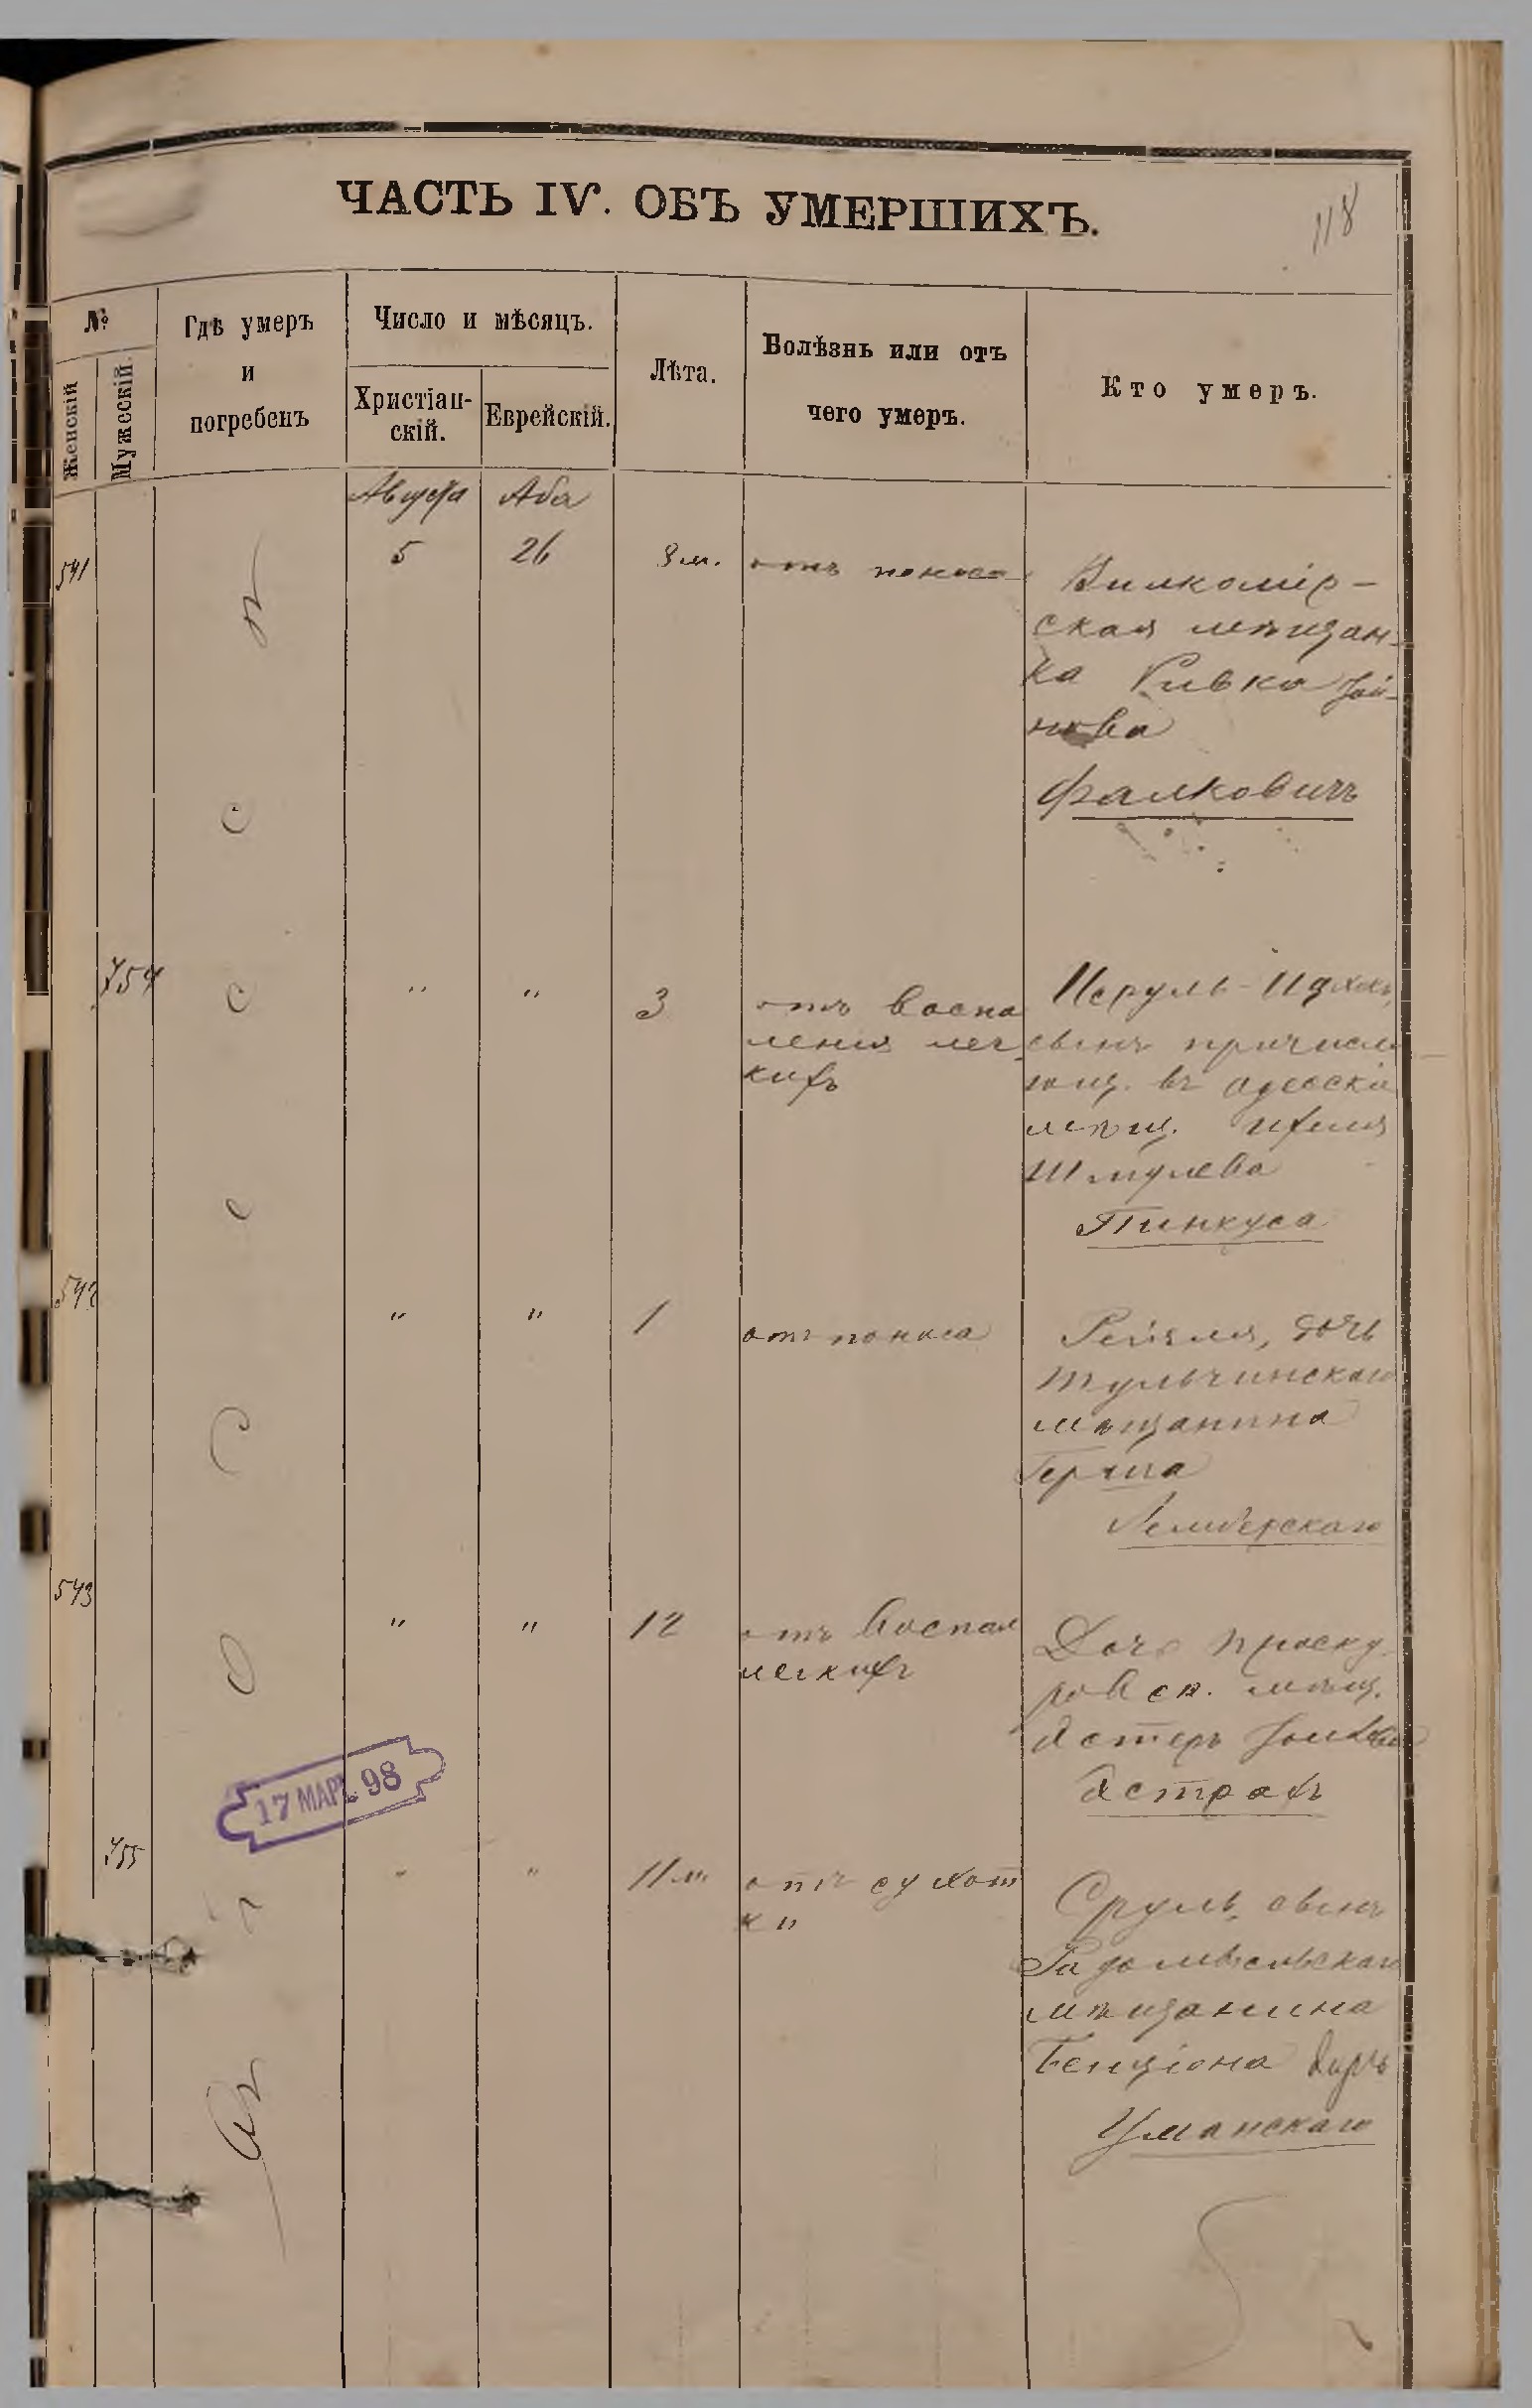 ЧАСТЬ IV. ОБЪ УМЕРШИХЪ.
118
№
Женскій
Мужескій.
Гдѣ умеръ
и
погребенъ
Число и мѣсяцъ.
Христіан-
скій.
Еврейскій.
Лѣта.
Болѣзнь или отъ
чего умеръ.
Кто умеръ.
Августа
Аба
541
5
26
8 м.
отъ поноса
Вилкомір-
ская мѣщан-
ка Ривка
нова
Фалковичъ
754
"
"
3
отъ воспа
ленія лег
кихъ
Исруль-
сынъ причисл
ющ. въ одесскіе
мѣщ.
Шмулева
Пинкуса
542
"
"
1
отъ поноса
Рейзля, дочь
тульчинскаго
мѣщанина
Герша
Лембергскаго
543
"
"
12
отъ воспал
легкихъ
Дочь проску
ровск. мѣщ.
Астрахъ
17 МАР. 98
755
"
"
11 м.
отъ сухот
ки
Сруль, сынъ
Радомысльскаго
мѣщанина
Бенціона
Уманскаго
Въ Одессѣ